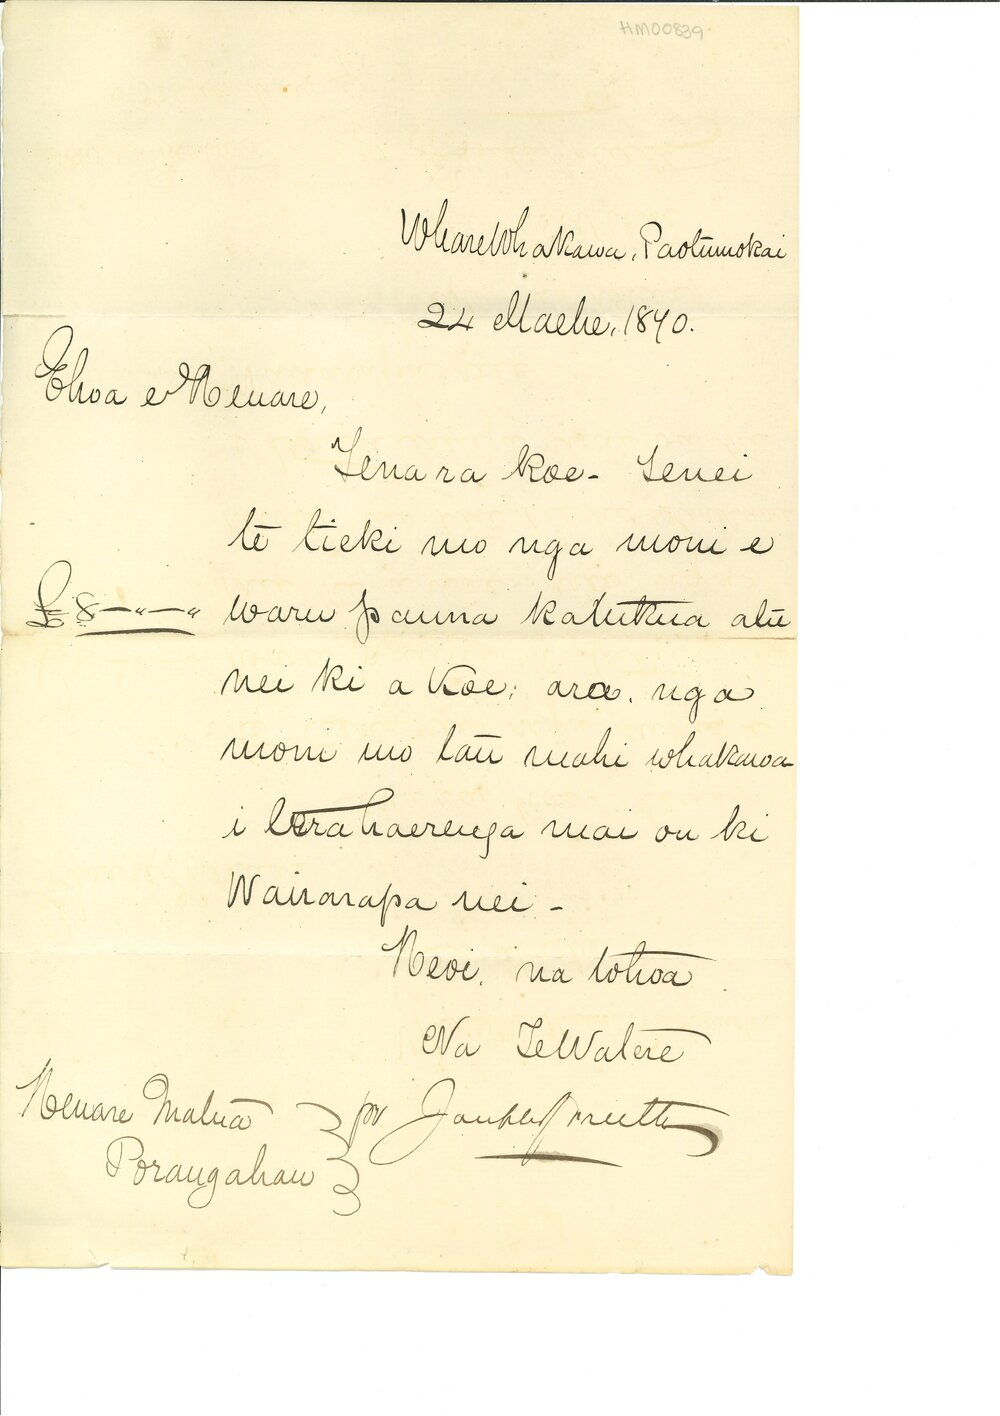 HM00839
WhareWhakawa, Paotumokai
24 Maehe, 1870.
Ehoa e Henare,
Tena ra koe - Tenei
te tieki mo nga moni e
£8-"-" waru pauna katukua atu
nei ki a koe; ara. nga
moni mo tau mahi whakawa
i tera haerenga mai ou ki
Wairarapa nei -
Heoi, na tohoa
Na TeWatere
Henare Matua
Porangahau
pr